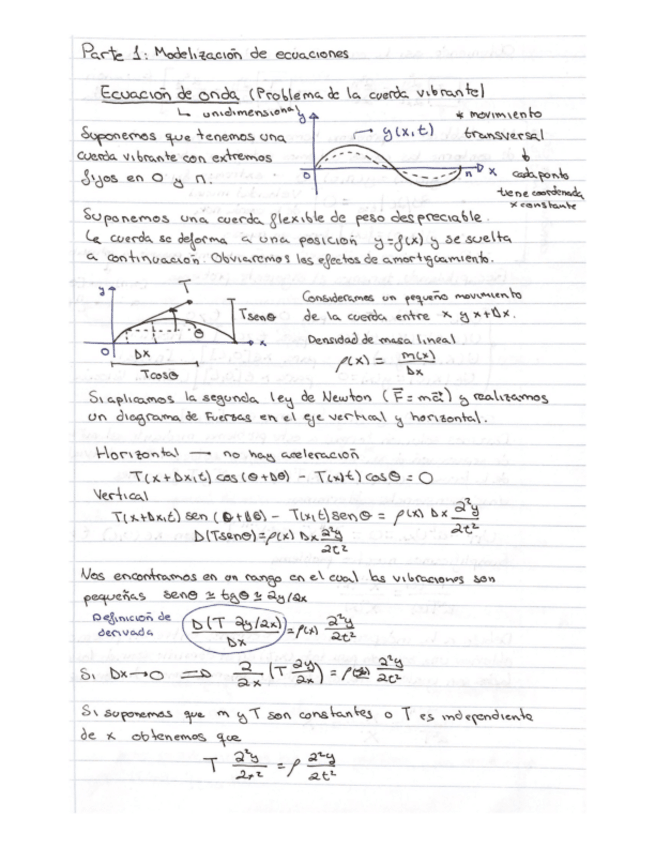 Parte 1: Modelización de ecuaciones
Ecuación de onda (Problema de la cuerda vibrante)
↳ unidimensional
y
y(x,t)
* movimiento
transversal
↓
cada punto
tiene coordenada
x constante
0
n
x
Suponemos que tenemos una
cuerda vibrante con extremos
fijos en 0 y n.
Suponemos una cuerda flexible de peso despreciable.
La cuerda se deforma a una posición y=f(x) y se suelta
a continuación. Obviaremos los efectos de amortiguamiento.
y
T
Tsenθ
θ
x
0
Δx
Tcosθ
Consideramos un pequeño movimiento
de la cuerda entre x y x+Δx.
Densidad de masa lineal
ρ(x) = m(x)/Δx
Si aplicamos la segunda ley de Newton (F⃗=ma⃗) y realizamos
un diagrama de fuerzas en el eje vertical y horizontal.
Horizontal → no hay aceleración
T(x+Δx,t) cos(θ+Δθ) - T(x,t) cosθ = 0
Vertical
T(x+Δx,t) sen(θ+Δθ) - T(x,t) senθ = ρ(x) Δx ∂²y/∂t²
Δ(Tsenθ) = ρ(x) Δx ∂²y/∂t²
Nos encontramos en un rango en el cual las vibraciones son
pequeñas senθ ≃ tgθ ≃ ∂y/∂x
Definición de
derivada
Δ(T ∂y/∂x)/Δx = ρ(x) ∂²y/∂t²
Si Δx→0 ⇒ ∂/∂x (T ∂y/∂x) = ρ ∂²y/∂t²
Si suponemos que m y T son constantes o T es independiente
de x obtenemos que
T ∂²y/∂x² = ρ ∂²y/∂t²